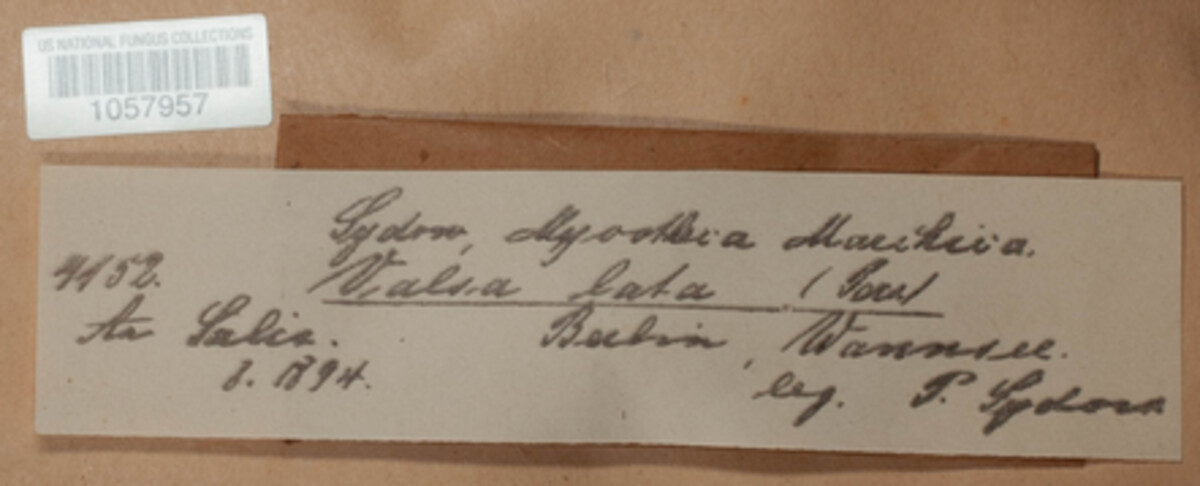 US NATIONAL FUNGUS COLLECTIONS
1057957
Sydow, Mycotheca Marchica.
4152. Valsa lata (Pers)
An Salix. Berlin, Wannsee.
8. 1894. leg. P. Sydow